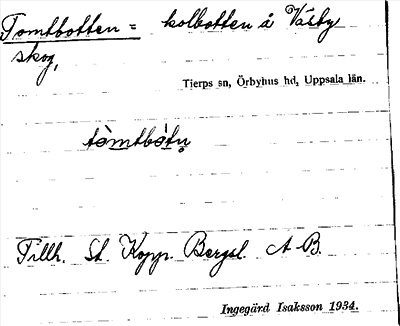 Tomtbotten = kolbotten å Väsby
skog,
Tierps sn, Örbyhus hd, Uppsala län.
tòmtbótṇ
Tillh. St. Kopp. Bergsl. A B.
Ingegärd Isaksson 1934.